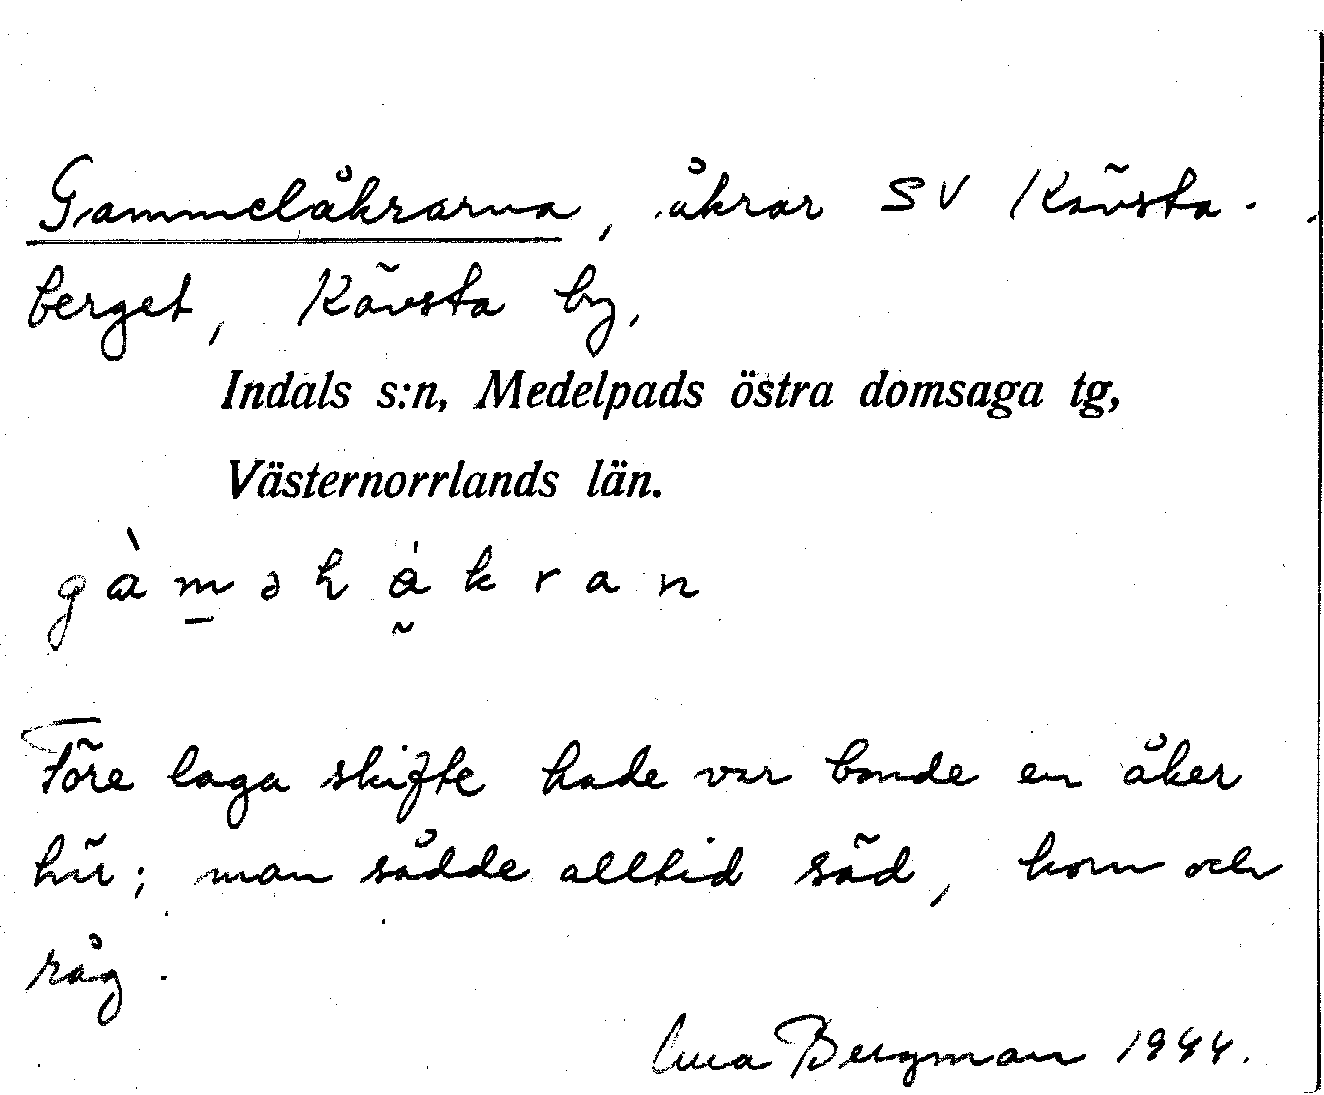 Gammelåkrarna, åkrar SV Kävsta-
berget, Kävsta by,
Indals s:n, Medelpads östra domsaga tg,
Västernorrlands län.
Före laga skifte hade var bonde en åker
här; man sådde alltid säd, korn och
råg.
Bergman 1944.